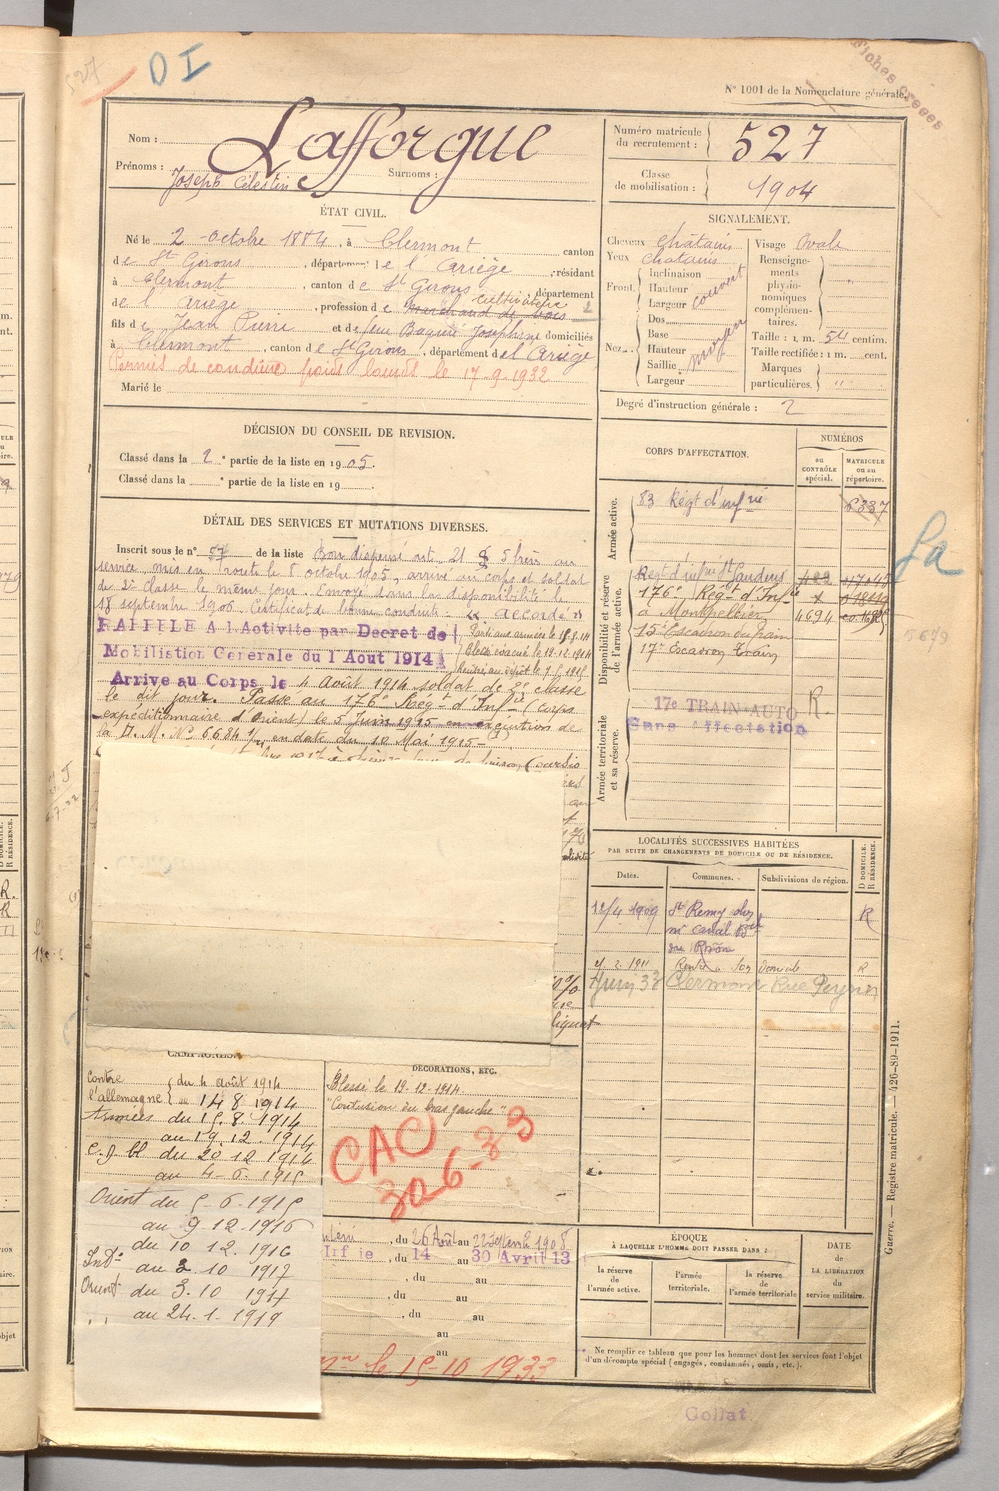 527
D I
Fiches Créées
N° 1001 de la Nomenclature générale.
Nom : Lafforgue
Prénoms : Joseph Célestin
Surnoms :
Numéro matricule du recrutement : 527
Classe de mobilisation : 1904
ÉTAT CIVIL.
Né le 2 Octobre 1884, à Clermont canton
de St Girons, département de l'Ariège, résidant
à Clermont, canton de St Girons département
de l'Ariège, profession de marchand de bois cultivateur
fils de Jean Pierre et de feue Baquié Joséphine domiciliés
à Clermont, canton de St Girons, département de l'Ariège
Permis de conduire poids lourds le 17-9-1932
Marié le
SIGNALEMENT.
Cheveux châtains
Yeux châtains
Front. Inclinaison
Hauteur
Largeur couvert
Nez. Dos
Base
Hauteur moyen
Saillie
Largeur
Visage Ovale
Renseignements physionomiques complémentaires.
Taille : 1 m. 54 centim.
Taille rectifiée : 1 m. cent.
Marques particulières. "
Degré d'instruction générale : 2
DÉCISION DU CONSEIL DE REVISION.
Classé dans la 2e partie de la liste en 1905.
Classé dans la e partie de la liste en 19
DÉTAIL DES SERVICES ET MUTATIONS DIVERSES.
Inscrit sous le n° 57 de la liste Bon dispensé art. 21 § 5 frère au
service, mis en route le 8 octobre 1905, arrivé au corps et soldat
de 2e classe le même jour. Envoyé dans la disponibilité le
18 septembre 1906. Certificat de bonne conduite : "accordé"
RAPPELÉ A l'Activité par Décret de
Mobilisation Générale du 1 Aout 1914
Parti aux armées le 15.8.14
Blessé évacué le 19-12-1914
Arrivé au Corps le 4 Août 1914 soldat de 2e classe
le dit jour. Passé au 176e Régt d'Infie (corps
expéditionnaire d'Orient) le 5 Juin 1915 en exécution de
la D. M. N° 6684 1/11 en date du 10 Mai 1915-
CORPS D'AFFECTATION.
NUMÉROS
au CONTRÔLE spécial.
MATRICULE ou au répertoire.
Armée active.
83 Régt d'infrie 6337
Disponibilité et réserve de l'armée active.
Régt d'infrie St Gaudens
176e Régt d'Infie
à Montpellier 4694
15e Escadron du train
17e Escadron Train
Armée territoriale et sa réserve.
17e TRAIN AUTO R.
Sans Affectation
La
5679
LOCALITÉS SUCCESSIVES HABITÉES
PAR SUITE DE CHANGEMENTS DE DOMICILE OU DE RÉSIDENCE.
Dates. Communes. Subdivisions de région. D DOMICILE. R RÉSIDENCE.
12/4 1909 St Remy chez R
mr
du Rhône
7. 2. 1911 Rentré à son domicile R
Juin 33 Clermont Rue
CAMPAGNES.
Contre l'allemagne du 4 août 1914
au 14 8 1914
Armées du 15. 8. 1914
au 19. 12. 1914
C. D bl du 20 12 1914
au 4-6. 1915
Orient du 5-6-1915
au 9-12-1916
Int. du 10 12. 1916
au 2 10 1917
Orient du 3. 10 1917
" au 24. 1. 1919
DÉCORATIONS, ETC.
Blessé le 19-12-1914
"Contusion du bras gauche"
CAC
30-6-33
du 26 Août au 22 Septembre 1908
Infie, du 14 au 30 Avril 13
, du au
, du au
du au
au
au
le 15-10 1933
ÉPOQUE
À LAQUELLE L'HOMME DOIT PASSER DANS :
la réserve de l'armée active.
l'armée territoriale.
la réserve de l'armée territoriale
DATE de LA LIBÉRATION du service militaire.
Ne remplir ce tableau que pour les hommes dont les services font l'objet
d'un décompte spécial (engagés, condamnés, omis, etc.).
Guerre. — Registre matricule. — 426-89-1911.
Gollat